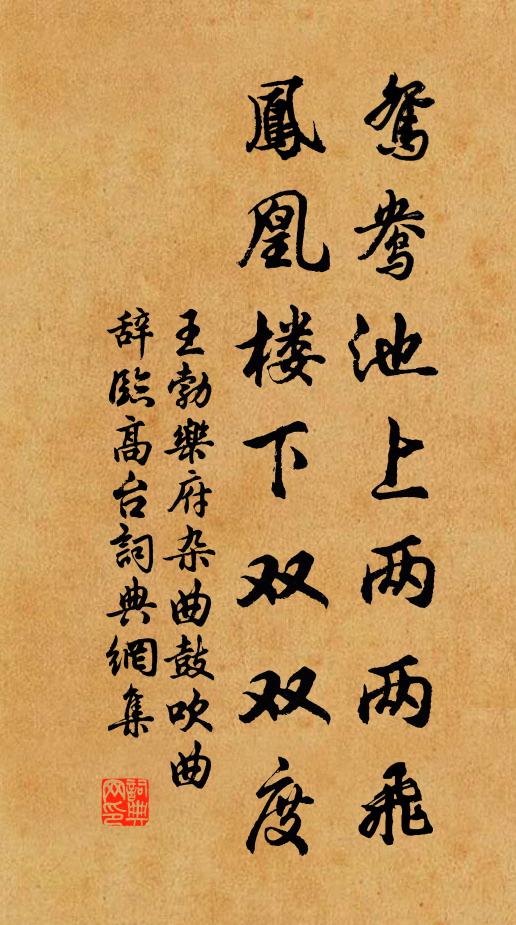 鸳鸯池上两两飛
鳳凰楼下双双度
王勃樂府杂曲鼓吹曲
辞臨高台詞典網集
詞典网印